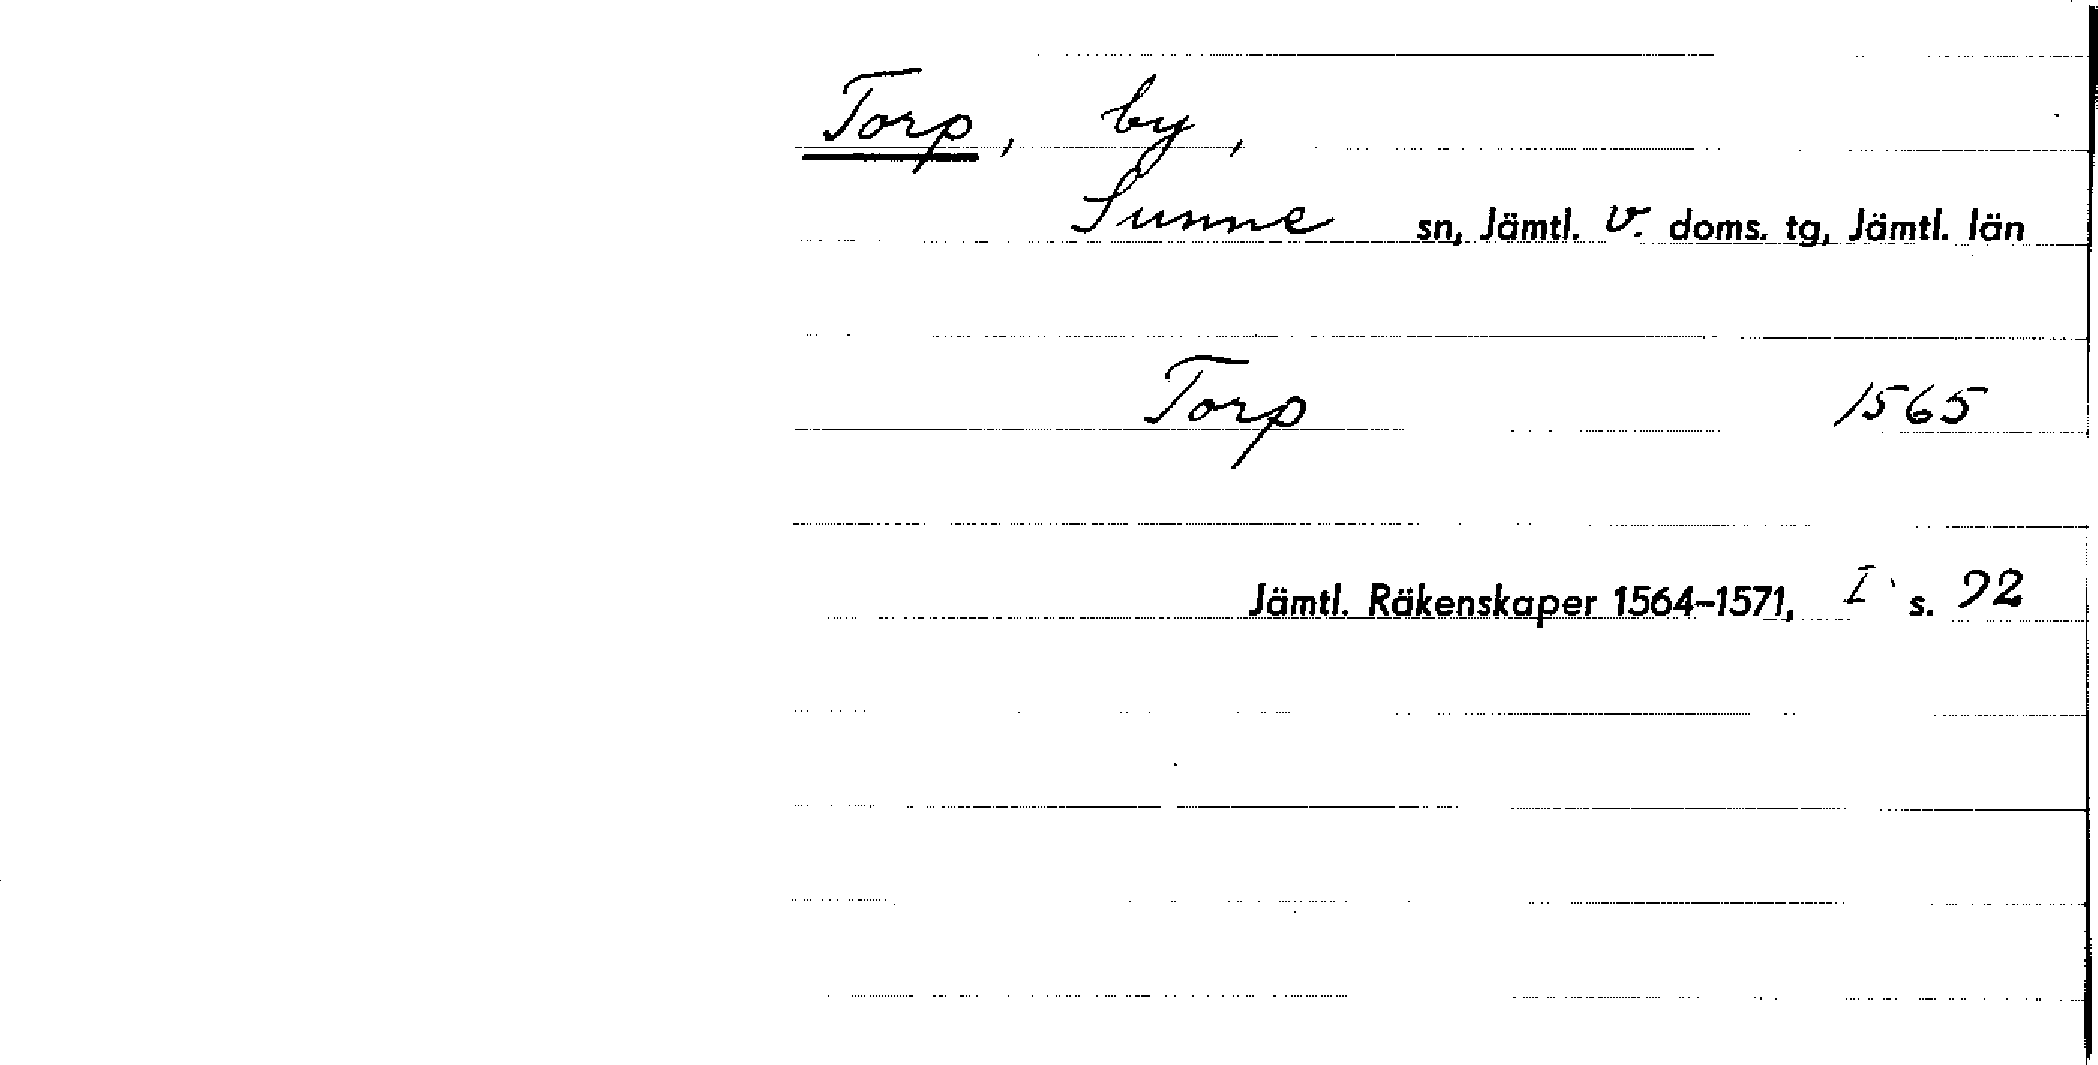 Torp, by,
Sunne sn, Jämtl. v. doms. tg, Jämtl. län
Torp 1565
Jämtl. Räkenskaper 1564–1571, I s. 92